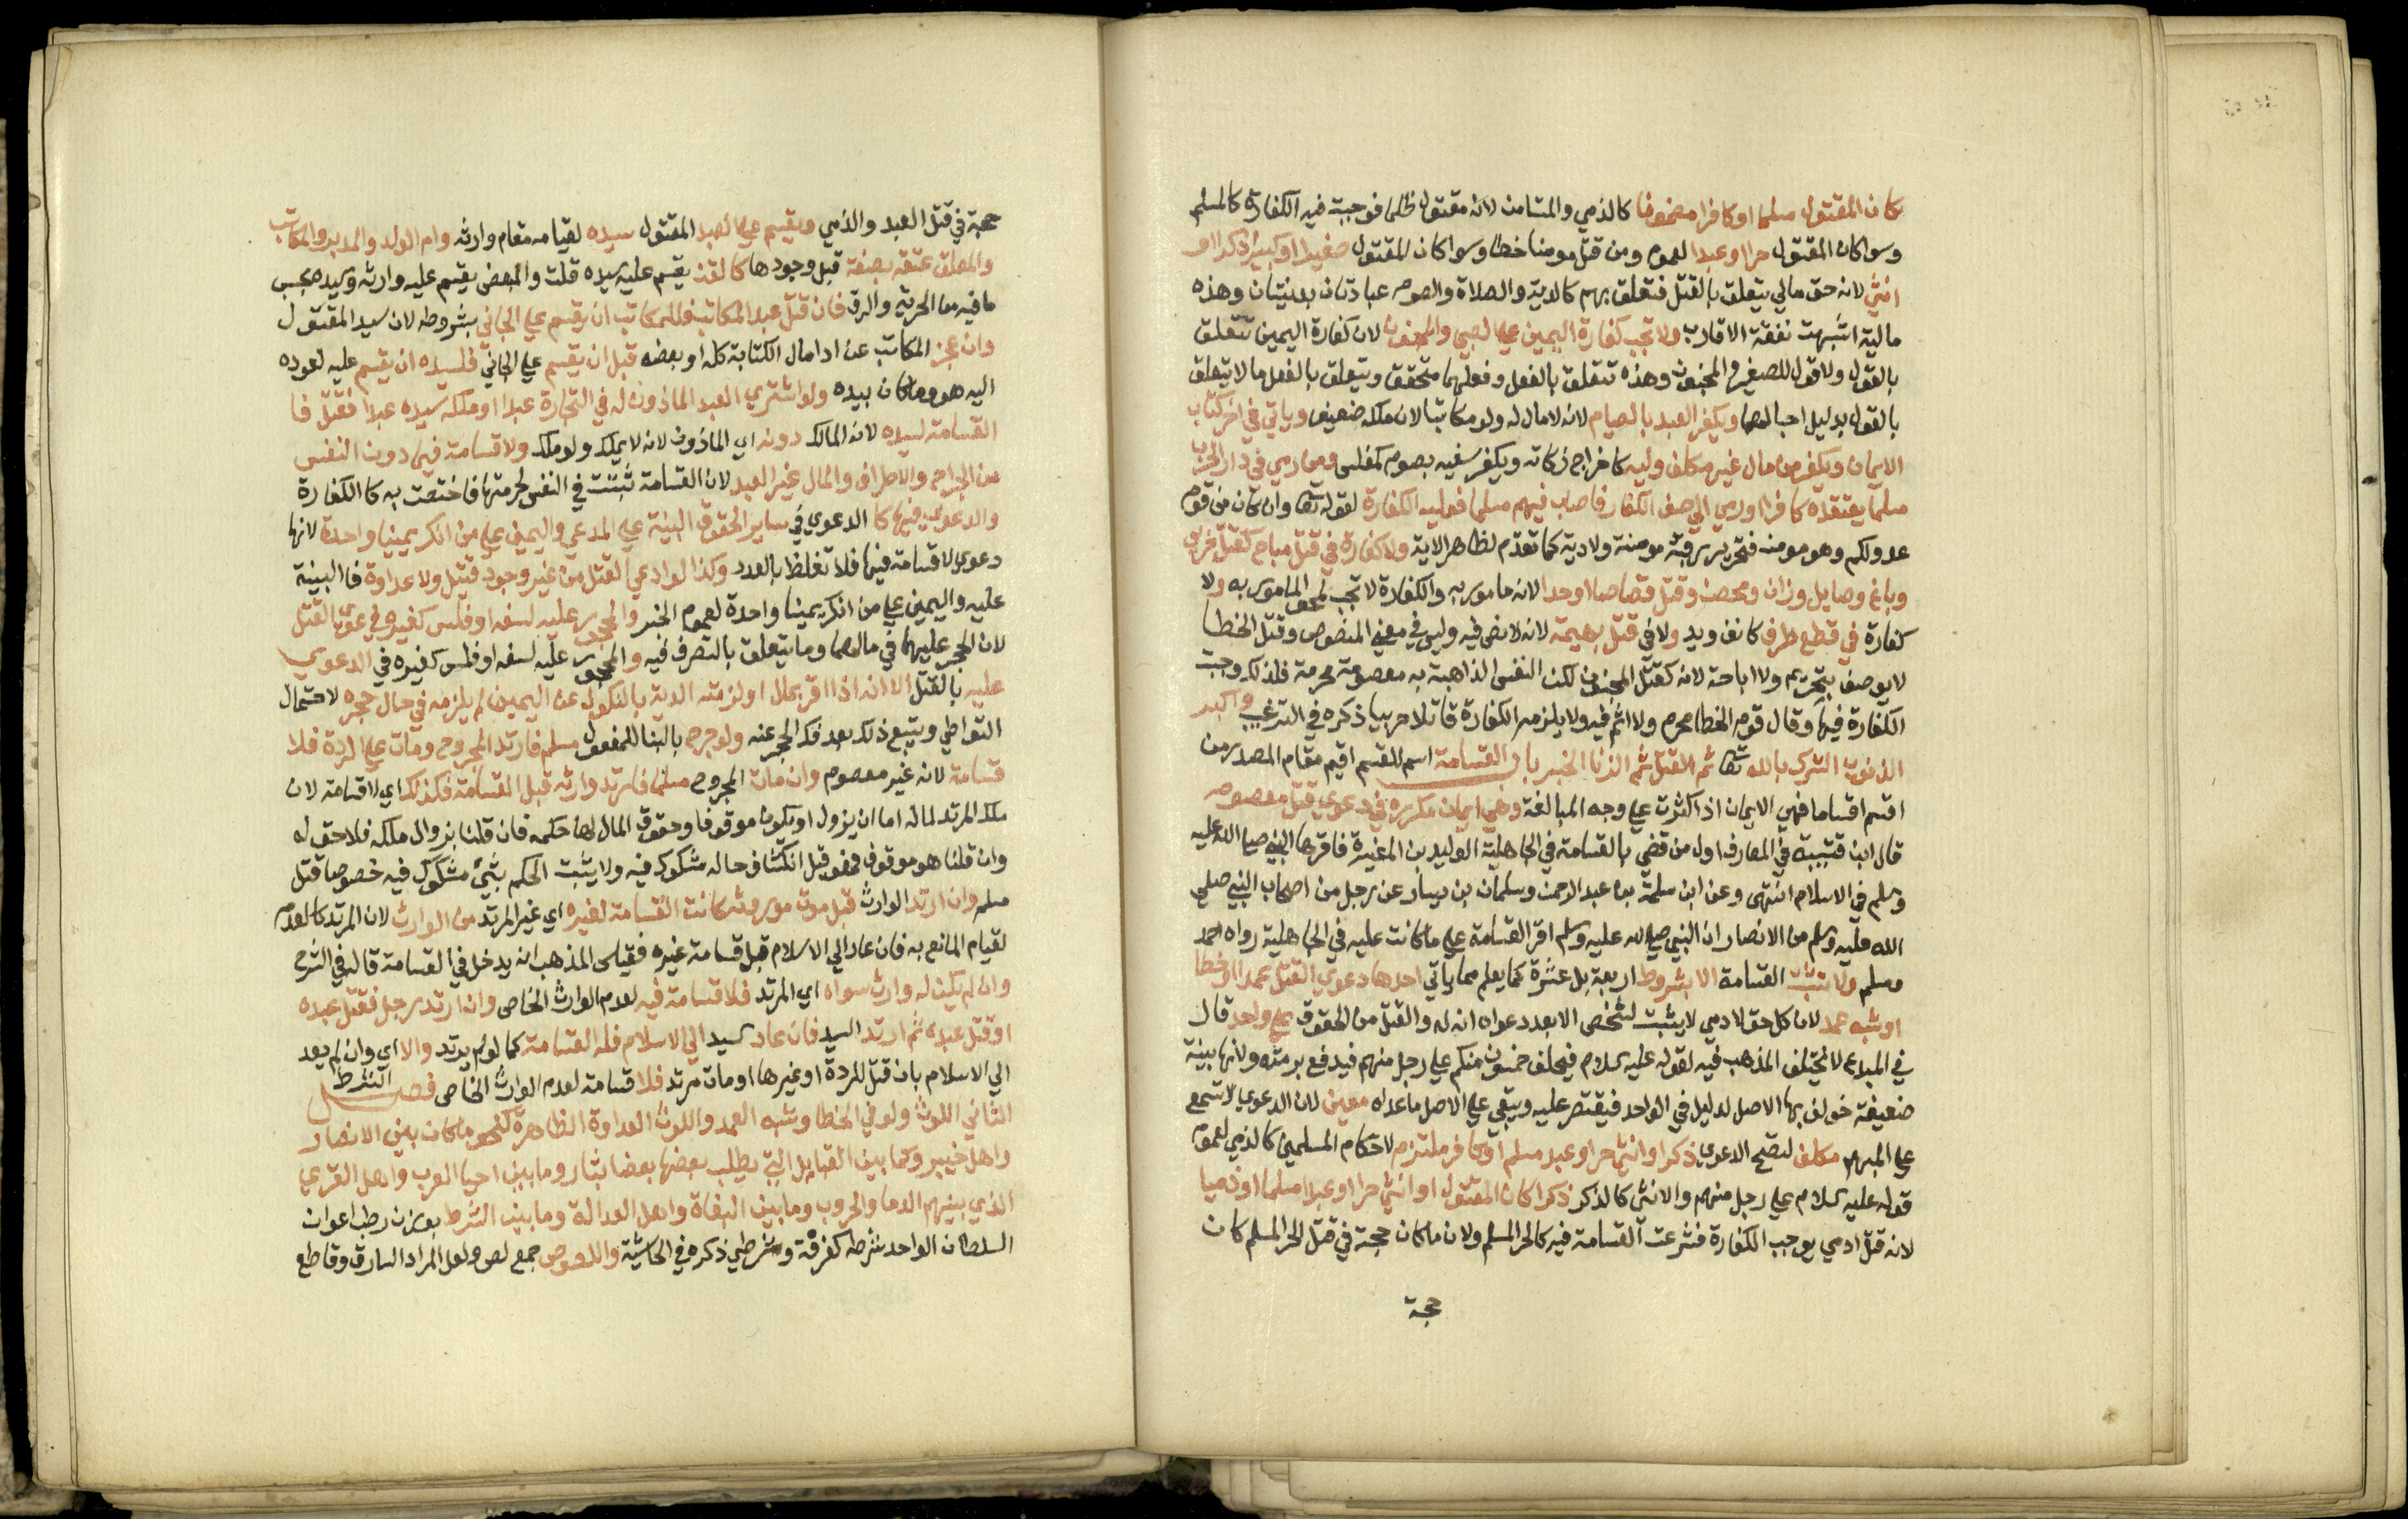 كان المقتول مسلما او كافرا مضمونا كالذمي والمستامن لانه مقتول ظلما فوجبت فيه الكفارة كالمسلم
وسوا كان المقتول حرا او عبدا لعموم ومن قتل مومنا خطا وسوا كان المقتول صغيرا او كبيرا ذكرا او
انثى لانه حق مالي يتعلق بالقتل فتعلق بهم كالدية والصلاة والصوم عبادتان بدنيتان وهذه
مالية اشبهت نفقة الاقارب ولا تجب كفارة اليمين على الصبي والمجنون لان كفارة اليمين تتعلق
بالقول ولا قول للصغير والمجنون وهذه تتعلق بالفعل وفعلهما متحقق ويتعلق بالفعل ما لا يتعلق
بالقول بدليل احبالهما ويكفر العبد بالصيام لانه لا مال له ولو مكاتبا لان ملكه ضعيف وياتي في اخر كتاب
الايمان ويكفر من مال غير مكلف وليه كاخراج زكاته ويكفر سفيه بصوم كمفلس ومن رمى في دار الحرب
مسلما يعتقده كافرا او رمى الي صف الكفار فاصاب فيهم مسلما فعليه الكفارة لقوله تعا وان كان من قوم
عدو لكم وهو مومن فتحرير رقبة مومنة ولا دية كما تقدم لظاهر الاية ولا كفارة في قتل مباح كقتل حربي
وباغ وصايل وزان ومحصن وقتل قصاصا او حدا لانه مامور به والكفارة لا تجب لمحو المامور به ولا
كفارة في قطع طرف كانف ويد ولا في قتل بهيمة لانه لا نص فيه وليس في معنى المنصوص وقتل الخطا
لا يوصف بتحريم ولا اباحة لانه كقتل المجنون لكن النفس الذاهبة به معصومة محرمة فلذلك وجبت
الكفارة فيها وقال قوم الخطا محرم ولا اثم فيه ولا يلزمه الكفارة قاتلا حربيا ذكره في الترغيب واكبر
الذنوب الشرك بالله تعا ثم القتل ثم الزنا للخبر باب القسامة اسم للقسم اقيم مقام المصدر من
اقسم اقساما فهي الايمان اذا كثرت على وجه المبالغة وهي ايمان مكررة في دعوى قتل معصوم
قال ابن قتيبة في المعارف اول من قضى بالقسامة في الجاهلية الوليد بن المغيرة فاقرها النبي صلى الله عليه
وسلم في الاسلام انتهى وعن ابن سلمة بن عبد الرحمن وسلمان بن يسار عن رجل من اصحاب النبي صلى
الله عليه وسلم من الانصار ان النبي صلى الله عليه وسلم اقر القسامة على ما كانت عليه في الجاهلية رواه احمد
ومسلم ولا تثبت القسامة الا بشروط اربعة بل عشرة كما يعلم مما ياتي احدها دعوى القتل عمدا او خطا
او شبه عمد لان كل حق لادمي لا يثبت لشخص الا بعد دعواه انه له والقتل من الحقوق على واحد قال
في المبدع لا يختلف المذهب فيه لقوله عليه السلام فيحلف خمسون منكم على رجل منهم فيدفع برمته ولانها بينة
ضعيفة خولف بها الاصل لدليل في الواحد فيقتصر عليه ويبقى على الاصل ما عداه معين لان الدعوى لا تسمع
على المبهم مكلف لتصح الدعوى ذكرا او انثى حر او عبد مسلم او كافر ملتزم لاحكام المسلمين كالذمي لعموم
قوله عليه السلام على رجل منهم والانثى كالذكر ذكرا كان المقتول او انثى حرا او عبدا مسلما او ذميا
لانه قتل ادمي يوجب الكفارة فشرعت القسامة فيه كالحر المسلم ولان ما كان حجة في قتل الحر المسلم كان
حجة
حجة في قتل العبد والذمي ويقسم على العبد المقتول سيده لقيامه مقام وارثه وام الولد والمدبر والمكاتب
والمعلق عتقه بصفة قبل وجودها كالقن يقسم عليه سيده قلت والمبعض يقسم عليه وارثه وسيده بحسب
ما فيه من الحرية والرق فان قتل عبد المكاتب فللمكاتب ان يقسم على الجاني بشروطه لان سيد المقتول
وان عجز المكاتب عن ادا مال الكتابة كله او بعضه قبل ان يقسم على الجاني فلسيده ان يقسم عليه لعوده
اليه هو وما كان بيده ولو اشترى العبد الماذون له في التجارة عبدا او ملكه سيده عبدا فقتل فا
القسامة لسيده لانه المالك دونه اي الماذون لانه لا يملك ولو ملك ولا قسامة فيما دون النفس
من الجراح والاطراف والمال غير العبد لان القسامة ثبتت في النفس لحرمتها فاختصت به كالكفارة
والدعوى فيها كا الدعوى في ساير الحقوق البينة على المدعي واليمين على من انكر يمينا واحدة لانها
دعوى لا قسامة فيها فلا تغلظ بالعدد وكذا لو ادعي القتل من غير وجود قتيل ولا عداوة فالبينة
عليه واليمين على من انكر يمينا واحدة لعموم الخبر والمحجور عليه لسفه او فلس كغيره في دعوى القتل
لان الحجر عليهما في مالهما وما يتعلق بالتصرف فيه والمحجور عليه لسفه او فلس كغيره في الدعوى
عليه بالقتل الا انه اذا اقر بمال او لزمته الدية بالنكول عن اليمين لم يلزمه في حال حجره لاحتمال
التواطي ويتبع ذلك بعد فك الحجر عنه ولو جرح بالبنا للمفعول مسلم فارتد المجروح ومات على الردة فلا
قسامة لانه غير معصوم وان مات المجروح مسلما فارتد وارثه قبل القسامة فكذلك اي لا قسامة لان
ملك المرتد لماله اما ان يزول او يكون موقوفا وحقوق المال لها حكمه فان قلنا بزوال ملكه فلا حق له
وان قلنا هو موقوف فهو قبل انكشاف حاله مشكوك فيه ولا يثبت الحكم بشي مشكوك فيه خصوصا قتل
مسلم وان ارتد الوارث قبل موت موروثه كانت القسامة لغيره اي غير المرتد من الوارث لان المرتد كالعدم
لقيام المانع به فان عاد الي الاسلام قبل قسامة غيره فقياس المذهب انه يدخل في القسامة قاله في الشرح
وان لم يكن له وارث سواه اي المرتد فلا قسامة فيه لعدم الوارث الخاص وان ارتد رجل فقتل عبده
او قتل عبده ثم ارتد السيد فان عاد السيد الي الاسلام فله القسامة كما لو لم يرتد والا اي وان لم يعد
الي الاسلام بان قتل للردة او غيرها او مات مرتد فلا قسامة لعدم الوارث الخاص فصل الشرط
الثاني اللوث ولو في الخطا وشبه العمد واللوث العداوة الظاهرة كنحو ما كان بين الانصار
واهل خيبر وكما بين القبايل التي يطلب بعضها بعضا بثار وما بين احيا العرب واهل القرى
الذي بينهم الدما والحروب وما بين البغاة واهل العدالة وما بين الشرط بوزن رطب اعوان
السلطان الواحد شرطة كغرفة وشرطي ذكره في الحاشية واللصوص جمع لص ولعل المراد السارق وقاطع